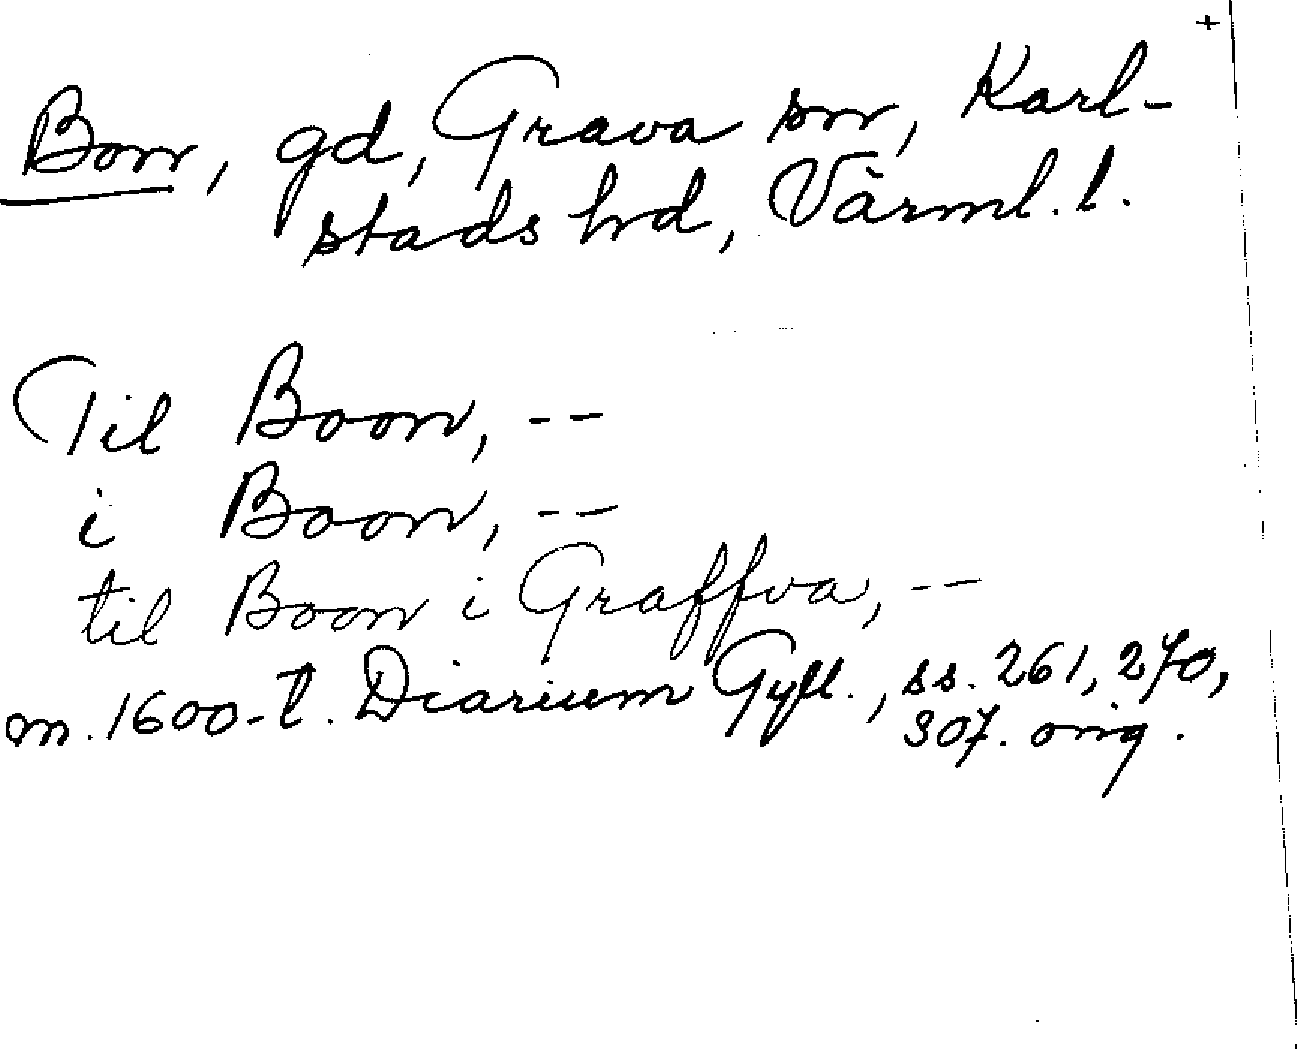 +
Bon, gd, Grava sn, Karl-
stads hd, Värml. l.
Til Boon, --
i Boon, --
til Boon i Graffva, --
m. 1600-t. Diarium Gyll., ss. 261, 270,
307. orig.